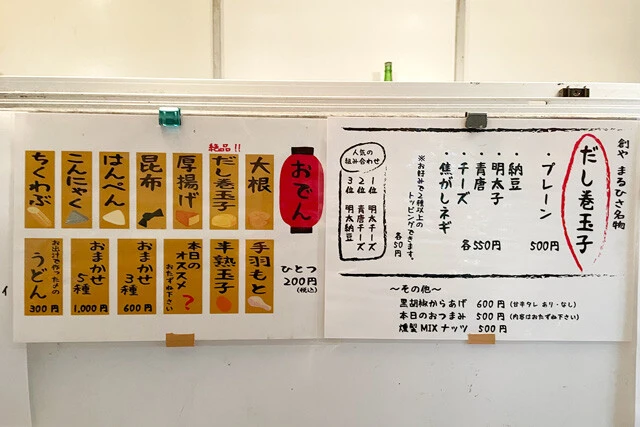 創や まるひさ名物
だし巻玉子
・プレーン 500円
・納豆
・明太子
・青唐
・チーズ
・焦がしネギ
各550円
※お好みで2種以上の
トッピングできます。
各50円
人気の
組み合わせ
1位 明太チーズ
2位 青唐チーズ
3位 明太納豆
〜その他〜
黒胡椒からあげ 600円 (甘辛タレ あり・なし)
本日のおつまみ 500円 (内容はおたずね下さい)
燻製MIXナッツ 500円
おでん
ひとつ
200円
(税込)
大根
絶品!!
だし巻玉子
厚揚げ
昆布
はんぺん
こんにゃく
ちくわぶ
手羽もと
半熟玉子
本日の
オススメ
おたずね下さい
?
おまかせ
3種
600円
おまかせ
5種
1,000円
お出汁で作ったよの
うどん
300円